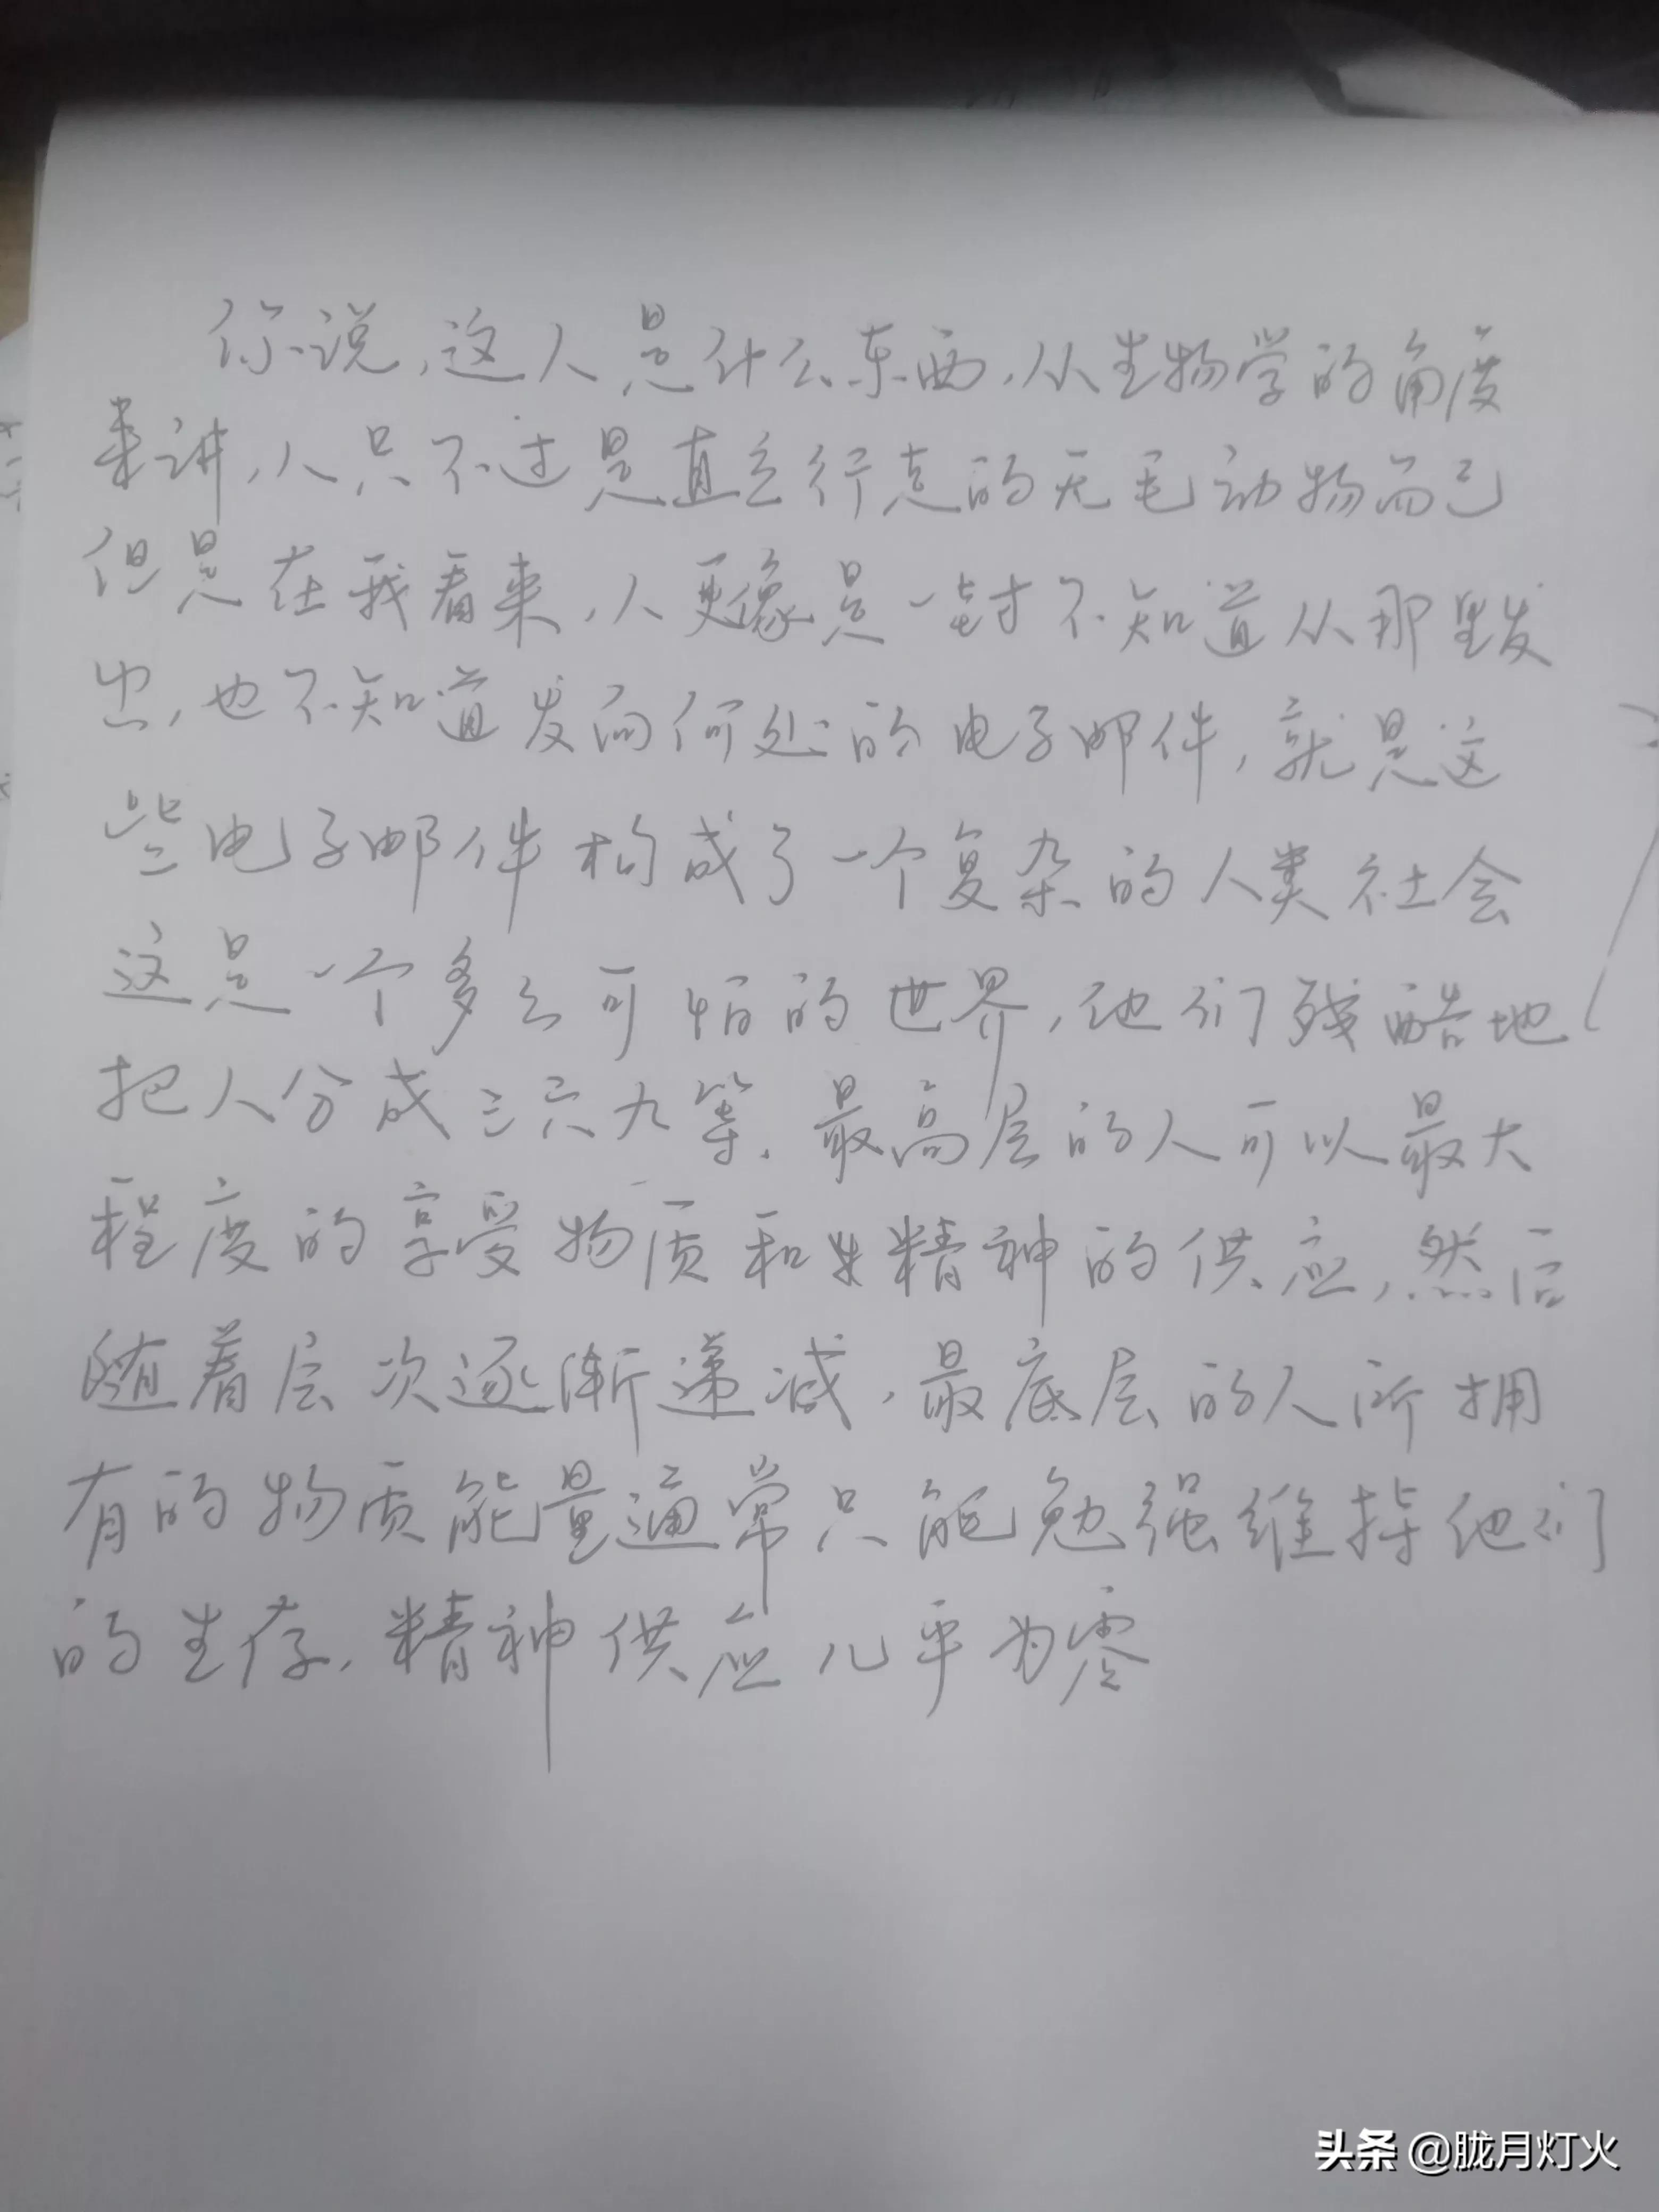 你说,这人是什么东西,从生物学的角度
来讲,人只不过是直立行走的无毛动物而已
但是在我看来,人更像是一封不知道从那里发
出,也不知道发向何处的电子邮件,就是这
些电子邮件构成了一个复杂的人类社会
这是一个多么可怕的世界,他们残酷地
把人分成三六九等.最高层的人可以最大
程度的享受物质和精神的供应,然后
随着层次逐渐递减,最底层的人所拥
有的物质能量通常只能勉强维持他们
的生存,精神供应几乎为零
头条 @胧月灯火